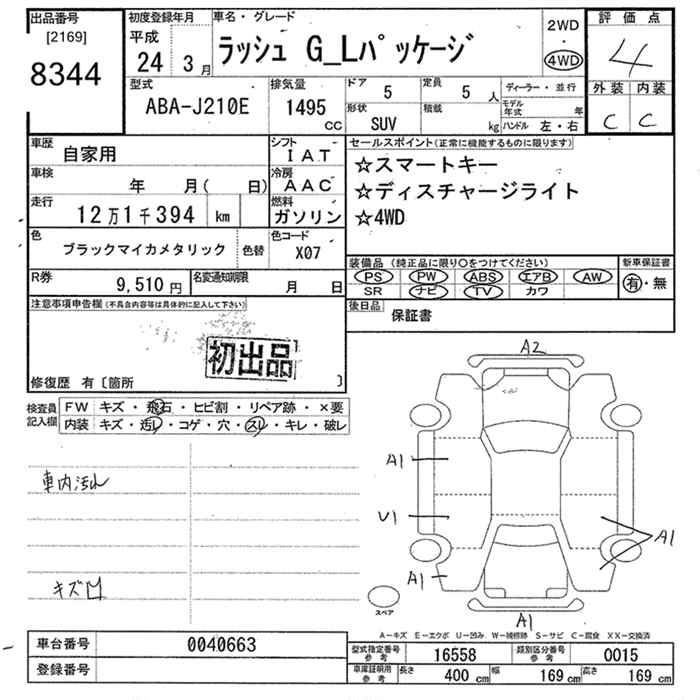 出品番号 初度登録年月 車名・グレード 2WD 評価点
[2169] 平成 ラッシュ G_Lパッケージ ・ 4
8344 24 3月 4WD
型式 排気量 ドア 定員 ディーラー・並行 外装 内装
ABA-J210E 1495 5 5 人 モデル年式 年 C C
CC 形状 SUV 積載 kg ハンドル 左・右
車歴 自家用 シフト IAT セールスポイント(正常に機能するものに限ります)
車検 年 月( 日) 冷房 AAC ☆スマートキー
走行 12万1千394 km 燃料 ガソリン ☆ディスチャージライト
☆4WD
色 ブラックマイカメタリック 色替 色コード X07
装備品(純正品に限り〇をつけてください) 新車保証書
R券 9,510円 名変通知期限 月 日 PS PW ABS エアB AW 有・無
SR ナビ TV カワ
注意事項申告欄(不具合内容等は具体的に記入して下さい) 後日品 保証書
初出品
修復歴 有〔箇所 〕
検査員記入欄 FW キズ・飛石・ヒビ割・リペア跡・×要
内装 キズ・汚レ・コゲ・穴・スレ・キレ・破レ
A2
A1
車内汚れ
U1
A1
キズ凹
A1
スペア
A1
A-キズ E-エクボ U-凹み W-補修跡 S-サビ C-腐食 XX-交換済
車台番号 0040663 型式指定番号 参考 16558 類別区分番号 参考 0015
登録番号 車庫証明用 参考 長さ 400 cm 幅 169 cm 高さ 169 cm